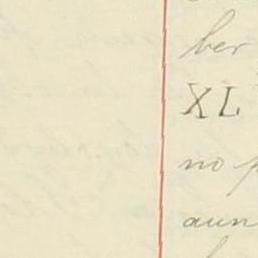 ber
XL
no p
aun